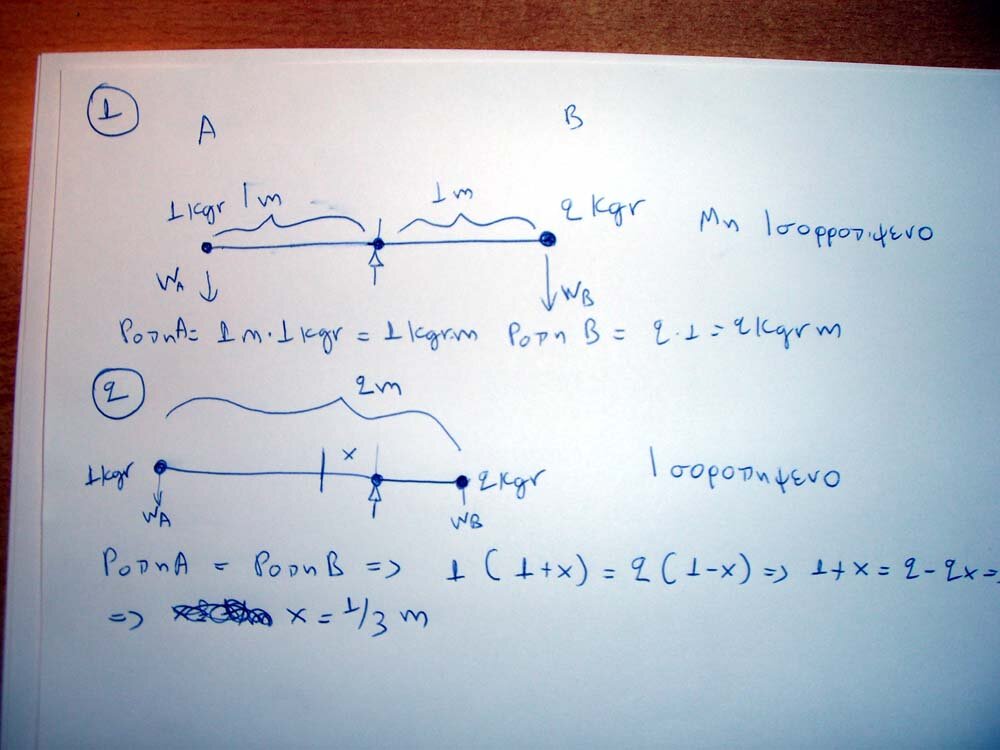 1
A B
1kgr 1m 1m 2kgr Μη Ισορροπιμενο
WA WB
Ροπη A = 1m·1kgr = 1kgr.m Ροπη B = 2·1 = 2kgr m
2
2m
1kgr x 2kgr Ισοροπημενο
WA WB
Ροπη A = Ροπη B => 1 (1+x) = 2 (1-x) => 1+x = 2-2x =>
=> x = 1/3 m